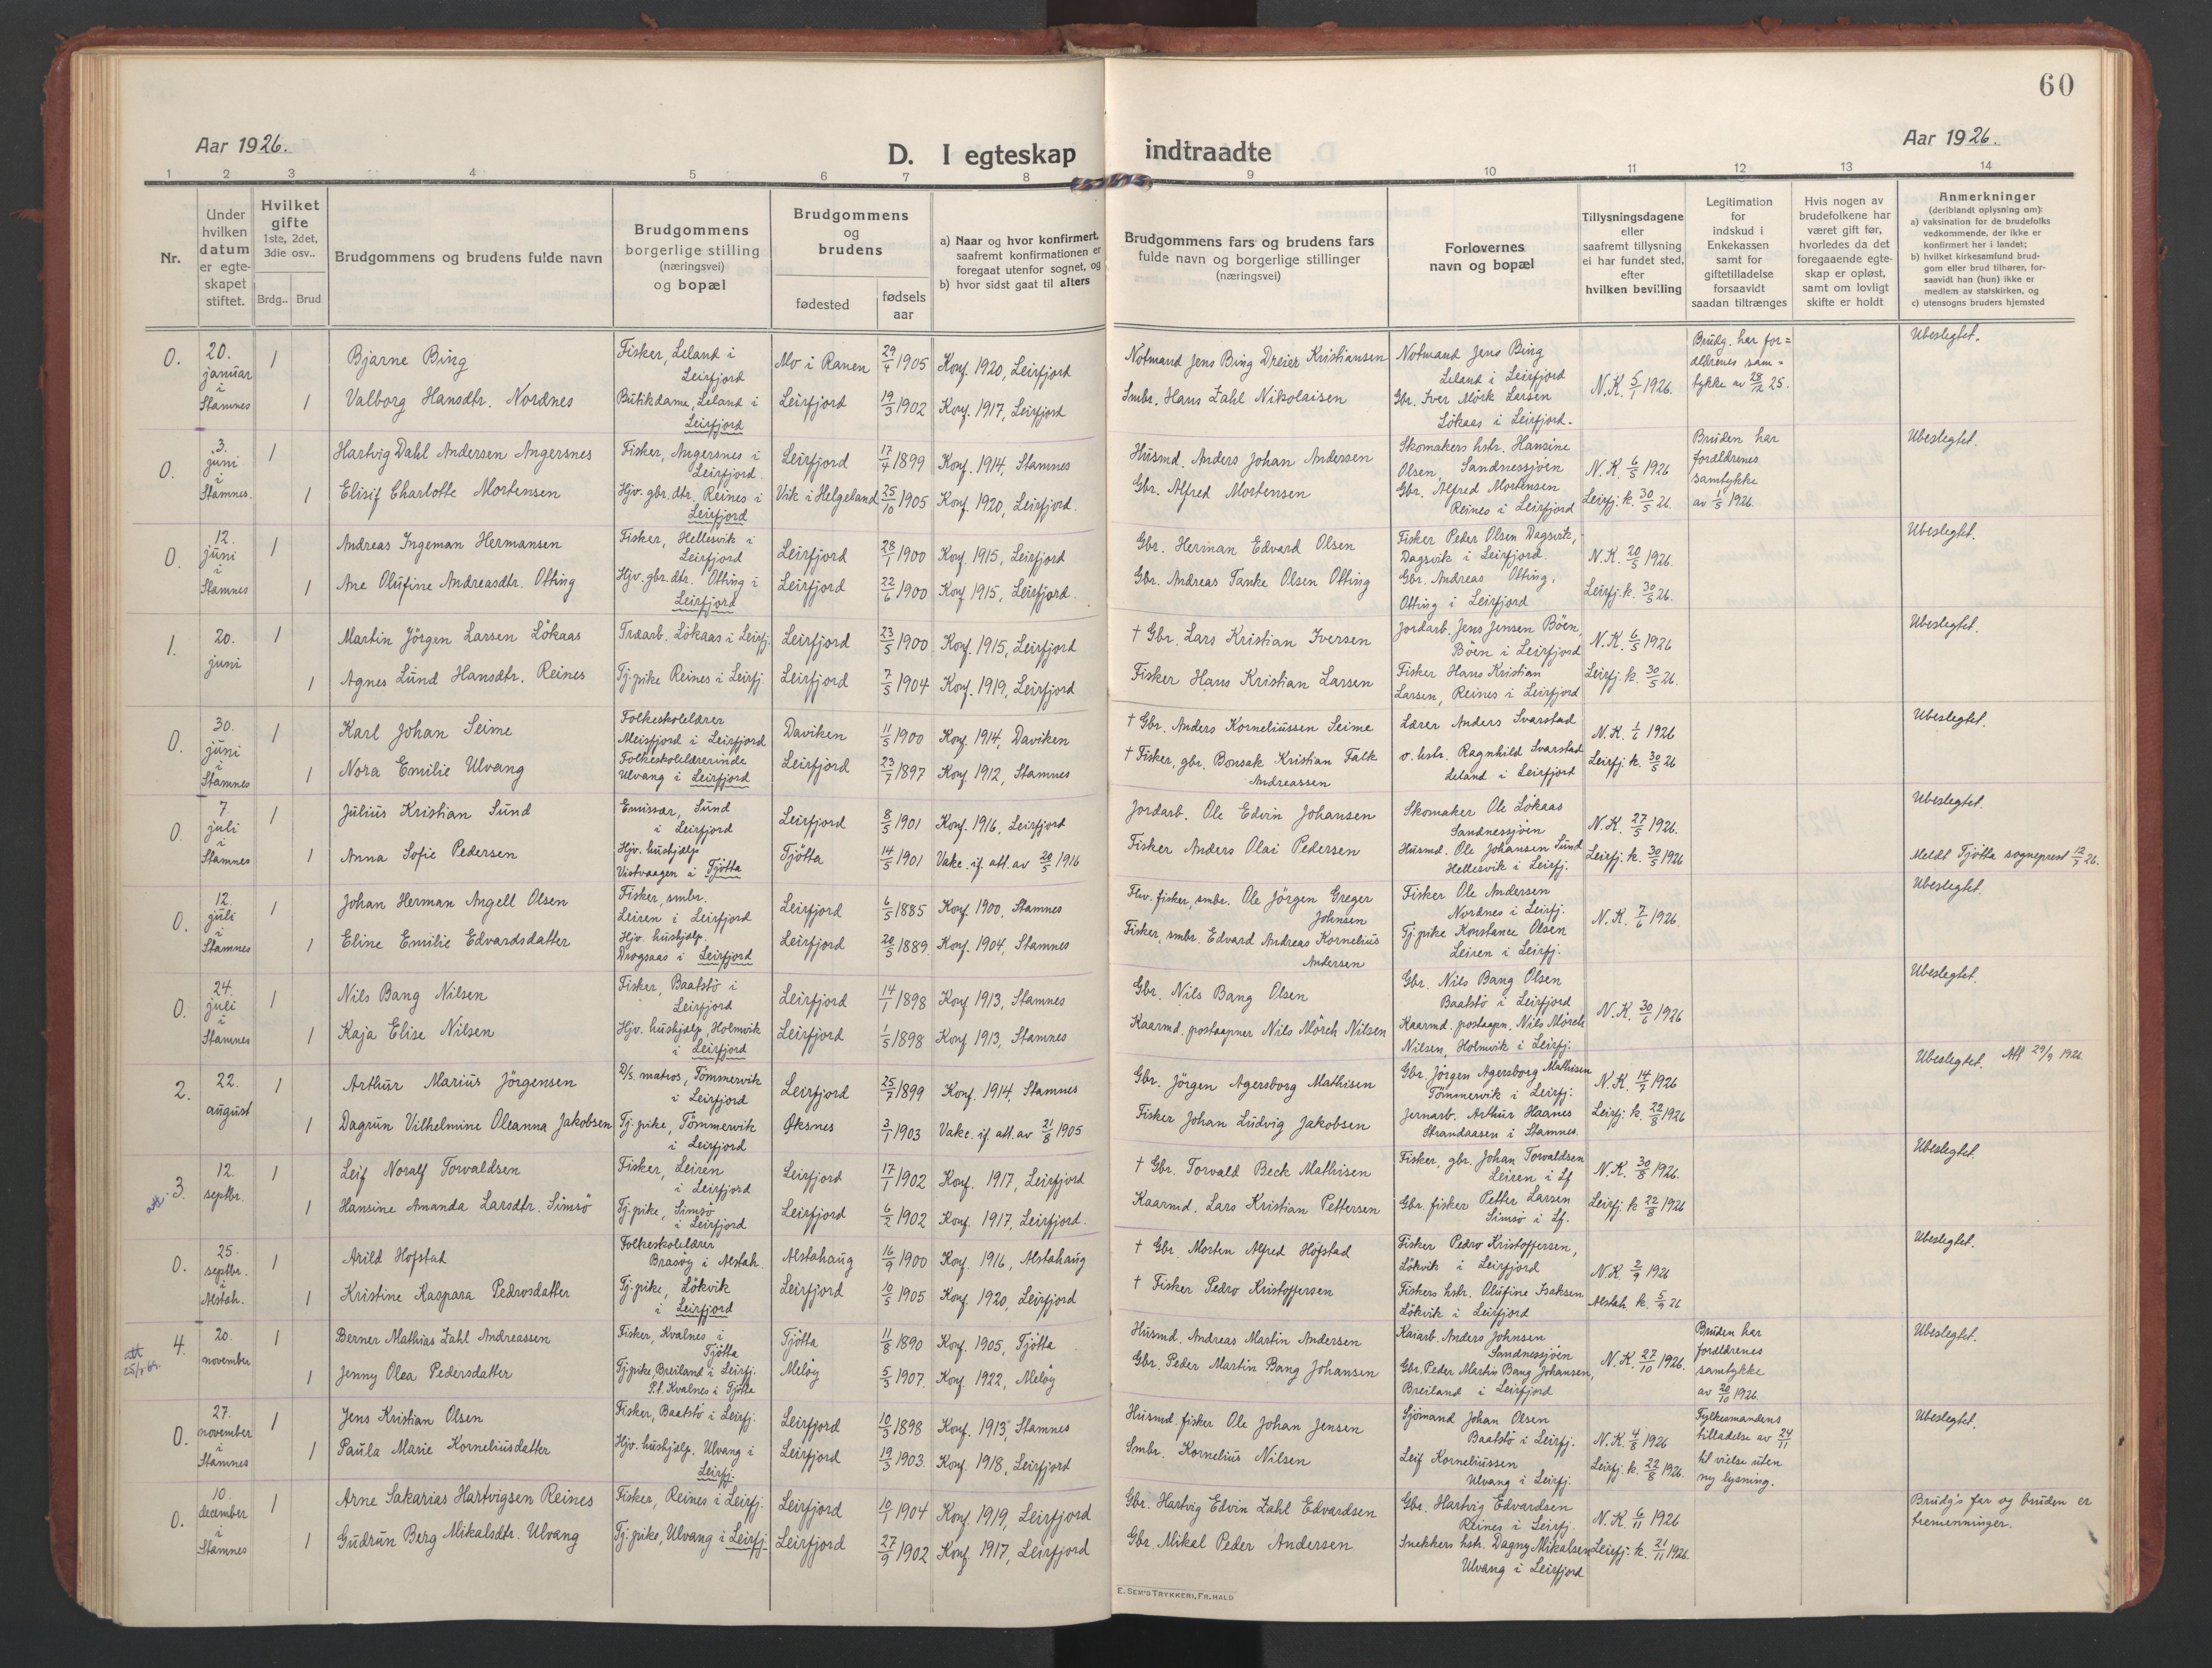 60
Aar 1926.
D. I egteskap indtraadte
Aar 1926.
1 2 3 4 5 6 7 8 9 10 11 12 13 14
Nr.
Under hvilken datum er egteskapet stiftet.
Hvilket gifte 1ste, 2det, 3die osv..
Brdg.. Brud
Brudgommens og brudens fulde navn
Brudgommens borgerlige stilling (næringsvei) og bopæl
Brudgommens og brudens
fødested
fødsels aar
a) Naar og hvor konfirmert, saafremt konfirmationen er foregaat utenfor sognet, og
b) hvor sidst gaat til alters
Brudgommens fars og brudens fars fulde navn og borgerlige stillinger (næringsvei)
Forlovernes navn og bopæl
Tillysningsdagene eller saafremt tillysning ei har fundet sted, efter hvilken bevilling
Legitimation for indskud i Enkekassen samt for giftetilladelse forsaavidt saadan tiltrænges
Hvis nogen av brudefolkene har været gift før, hvorledes da det foregaaende egteskap er opløst, samt om lovligt skifte er holdt
Anmerkninger (deriblandt oplysning om):
a) vaksination for de brudefolks vedkommende, der ikke er konfirmert her i landet;
b) hvilket kirkesamfund brudgom eller brud tilhører, forsaavidt han (hun) ikke er medlem av statskirken, og
c) utensogns bruders hjemsted
0. 20. januar i Stamnes 1 Bjarne Bing Fisker, Leland i Leirfjord Mo i Ranen 29/4 1905 Konf. 1920, Leirfjord Notmand Jens Bing Dreier Kristiansen Notmand Jens Bing Leland i Leirfjord N.K. 5/1 1926. Brudg. har forældrenes samtykke av 28/12 25. Ubeslegtet.
1 Valborg Hansdtr. Nordnes Butikdame, Leland i Leirfjord Leirfjord 19/3 1902 Konf. 1917, Leirfjord Smbr. Hans Zahl Nikolaisen Gbr. Iver Mörk Larsen Lökaas i Leirfjord.
0. 3. juni i Stamnes. 1 Hartvig Dahl Andersen Angersnes Fisker, Angersnes i Leirfjord. Leirfjord 17/4 1899 Konf. 1914, Stamnes Husmd. Anders Johan Andersen Skomakers hstr. Hansine Olsen, Sandnessjöen N.K. 6/5 1926 Bruden har forældrenes samtykke av 1/5 1926. Ubeslegtet.
1 Elisif Charlotte Mortensen Hjv. gbr. dtr. Reines i Leirfjord Vik i Helgeland 25/10 1905 Konf. 1920, Leirfjord. Gbr. Alfred Mortensen Gbr. Alfred Mortensen Reines i Leirfjord Leirfj. k. 30/5 26.
0. 12. juni i Stamnes 1 Andreas Ingeman Hermansen Fisker, Hellesvik i Leirfjord Leirfjord 28/1 1900 Konf. 1915, Leirfjord Gbr. Herman Edvard Olsen Fisker Peder Olsen Dagsvik, Dagsvik i Leirfjord. N.K. 20/5 1926. Ubeslegtet.
1 Ane Olufine Andreasdtr. Otting Hjv. gbr. dtr. Otting i Leirfjord Leirfjord 22/6 1900 Konf. 1915, Leirfjord. Gbr. Andreas Tanke Olsen Otting Gbr. Andreas Otting, Otting i Leirfjord Leirfj. k. 30/5 26.
1. 20. juni 1 Martin Jörgen Larsen Lökaas Træarb. Lökaas i Leirfj. Leirfjord 23/5 1900 Konf. 1915, Leirfjord † Gbr. Lars Kristian Iversen Jordarb. Jens Jensen Böen, Böen i Leirfjord N.K. 6/5 1926 Ubeslegtet.
1 Agnes Lund Hansdtr. Reines Tj. pike Reines i Leirfj. Leirfjord 7/5 1904 Konf. 1919, Leirfjord Fisker Hans Kristian Larsen Fisker Hans Kristian Larsen, Reines i Leirfjord Leirfj. k. 30/5 26.
0. 30. juni i Stamnes 1 Karl Johan Seime Folkeskolelærer Meisfjord i Leirfjord Daviken 11/5 1900 Konf. 1914, Daviken † Gbr. Anders Korneliussen Seime Lærer Anders Svarstad N.K. 1/6 1926 Ubeslegtet.
1 Nora Emilie Ulvang Folkeskolelærerinde Ulvang i Leirfjord Leirfjord 23/7 1897 Konf. 1912, Stamnes † Fisker, gbr. Bonsak Kristian Falk Andreassen o. hstr. Ragnhild Svarstad Leland i Leirfjord Leirfj. k. 30/5 26
0. 7. juli i Stamnes 1 Julius Kristian Sund Emissær, Sund i Leirfjord Leirfjord 8/5 1901 Konf. 1916, Leirfjord Jordarb. Ole Edvin Johansen Skomaker Ole Lökaas Sandnessjöen N.K. 27/5 1926. Ubeslegtet.
1 Anna Sofie Pedersen Hjv. hushjælp Vistvaagen i Tjötta Tjötta 14/5 1901 Vakc. if. att. av 20/5 1916 Fisker Anders Olai Pedersen Husmd. Ole Johansen Sund Hellesvik i Leirfj. Leirfj. k. 30/5 1926 Meldt Tjötta sogneprest 12/7 26.
0. 12. juli i Stamnes 1 Johan Herman Angell Olsen Fisker, smbr. Leiren i Leirfjord Leirfjord 6/5 1885 Konf. 1900, Stamnes Fhv. fisker, smbr. Ole Jörgen Greger Johnsen Fisker Ole Andersen Nordnes i Leirfj. N.K. 7/6 1926. Ubeslegtet.
1 Eline Emilie Edvardsdatter Hjv. hushjælp. Drogsaas i Leirfjord Leirfjord 20/5 1889. Konf. 1904, Stamnes Fisker, smbr. Edvard Andreas Kornelius Andersen Tj. pike Konstance Olsen Leiren i Leirfj.
0. 24. juli i Stamnes 1 Nils Bang Nilsen Fisker, Baatstö i Leirfjord Leirfjord 14/1 1898 Konf. 1913, Stamnes Gbr. Nils Bang Olsen Gbr. Nils Bang Olsen Baatstö i Leirfjord N.K. 30/6 1926 Ubeslegtet.
1 Kaja Elise Nilsen Hjv. hushjælp, Holmvik i Leirfjord Leirfjord 1/5 1898 Konf. 1913, Stamnes Kaarmd. postaapner Nils Mörch Nilsen Kaarmd. postaapn. Nils Mörch Nilsen, Holmvik i Leirfj.
2. 22. august 1 Arthur Marius Jörgensen D/s. matros, Tömmervik i Leirfjord Leirfjord 25/7 1899 Konf. 1914, Stamnes Gbr. Jörgen Agersborg Mathisen Gbr. Jörgen Agersborg Mathisen Tömmervik i Leirfj. N.K. 14/7 1926 Ubeslegtet. Att 29/9 1926
1 Dagrun Vilhelmine Oleanna Jakobsen Tj. pike, Tömmervik i Leirfjord Øksnes 3/1 1903 Vakc. if. att. av 21/8 1905 Fisker Johan Ludvig Jakobsen Jernarb. Arthur Haanes Strandaasen i Stamnes. Leirfj. k. 22/8 1926
att. 3. 12. septbr. 1 Leif Noralf Torvaldsen Fisker, Leiren i Leirfjord Leirfjord 17/1 1902 Konf. 1917, Leirfjord † Gbr. Torvald Beck Mathisen Fisker, gbr. Johan Torvaldsen Leiren i Lf N.K. 30/8 1926. Ubeslegtet.
1 Hansine Amanda Larsdtr. Simsö Tj. pike, Simsö i Leirfjord Leirfjord 6/2 1902 Konf. 1917, Leirfjord. Kaarmd. Lars Kristian Pettersen Gbr. fisker Petter Larsen Simsö i Lf. Leirfj. k 22/8 1926
0. 25. septbr. i Alstah. 1 Arild Hofstad Folkeskolelærer Brasöy i Alstah. Alstahaug 16/9 1900 Konf. 1916, Alstahaug † Gbr. Morten Alfred Hofstad Fisker Pedro Kristoffersen, Lökvik i Leirfjord N.K. 2/9 1926 Ubeslegtet.
1 Kristine Kaspara Pedrosdatter Tj. pike, Lökvik i Leirfjord Leirfjord 10/5 1905 Konf. 1920, Leirfjord † Fisker Pedro Kristoffersen Fiskers hstr. Olufine Isaksen Lökvik i Leirfjord Alstah. k. 5/9 26
att 4. 20. november 1 Berner Mathias Zahl Andreassen Fisker, Kvalnes i Tjötta Tjötta 11/8 1890 Konf. 1905, Tjötta Husmd. Andreas Martin Andersen Kaiarb. Anders Johnsen Sandnessjöen N.K. 27/10 1926. Bruden har forældrenes samtykke av 20/10 1926. Ubeslegtet.
1 Jenny Olea Pedersdatter Tj. pike, Breiland i Leirfj. P.t. Kvalnes i Tjötta Melöy 5/3 1907. Konf. 1922, Melöy Gbr. Peder Martin Bang Johansen Gbr. Peder Martin Bang Johansen, Breiland i Leirfjord
0. 27. november i Stamnes 1 Jens Kristian Olsen Fisker, Baatstö i Leirfj. Leirfjord 10/3 1898 Konf. 1913, Stamnes Husmd. fisker Ole Johan Jensen Sjömand Johan Olsen Baatstö i Leirfj. N.K. 4/8 1926 Fylkesmandens tilladelse av 24/11 til vielse uten ny lysning. Ubeslegtet.
1 Paula Marie Korneliusdatter Hjv. hushjælp. Ulvang i Leirfj. Leirfjord 19/3 1903. Konf. 1918, Leirfjord Smbr. Kornelius Nilsen Leif Korneliussen Ulvang i Leirfj. Leirfj. k. 22/8 1926.
0. 10. december i Stamnes 1 Arne Sakarias Hartvigsen Reines Fisker, Reines i Leirfj. Leirfjord 10/1 1904 Konf. 1919, Leirfjord Gbr. Hartvig Edvin Zahl Edvardsen Gbr. Hartvig Edvardsen Reines i Leirfj. N.K. 6/11 1926 Brudg's far og bruden er tremenninger.
1 Gudrun Berg Mikalsdtr. Ulvang Tj. pike, Ulvang i Leirfj. Leirfjord 27/9 1902 Konf. 1917, Leirfjord Gbr. Mikal Peder Andersen Snekkers hstr. Dagny Mikalsen Ulvang i Leirfjord Leirfj. k. 21/11 1926.
E. SEM'S TRYKKERI, FR.HALD